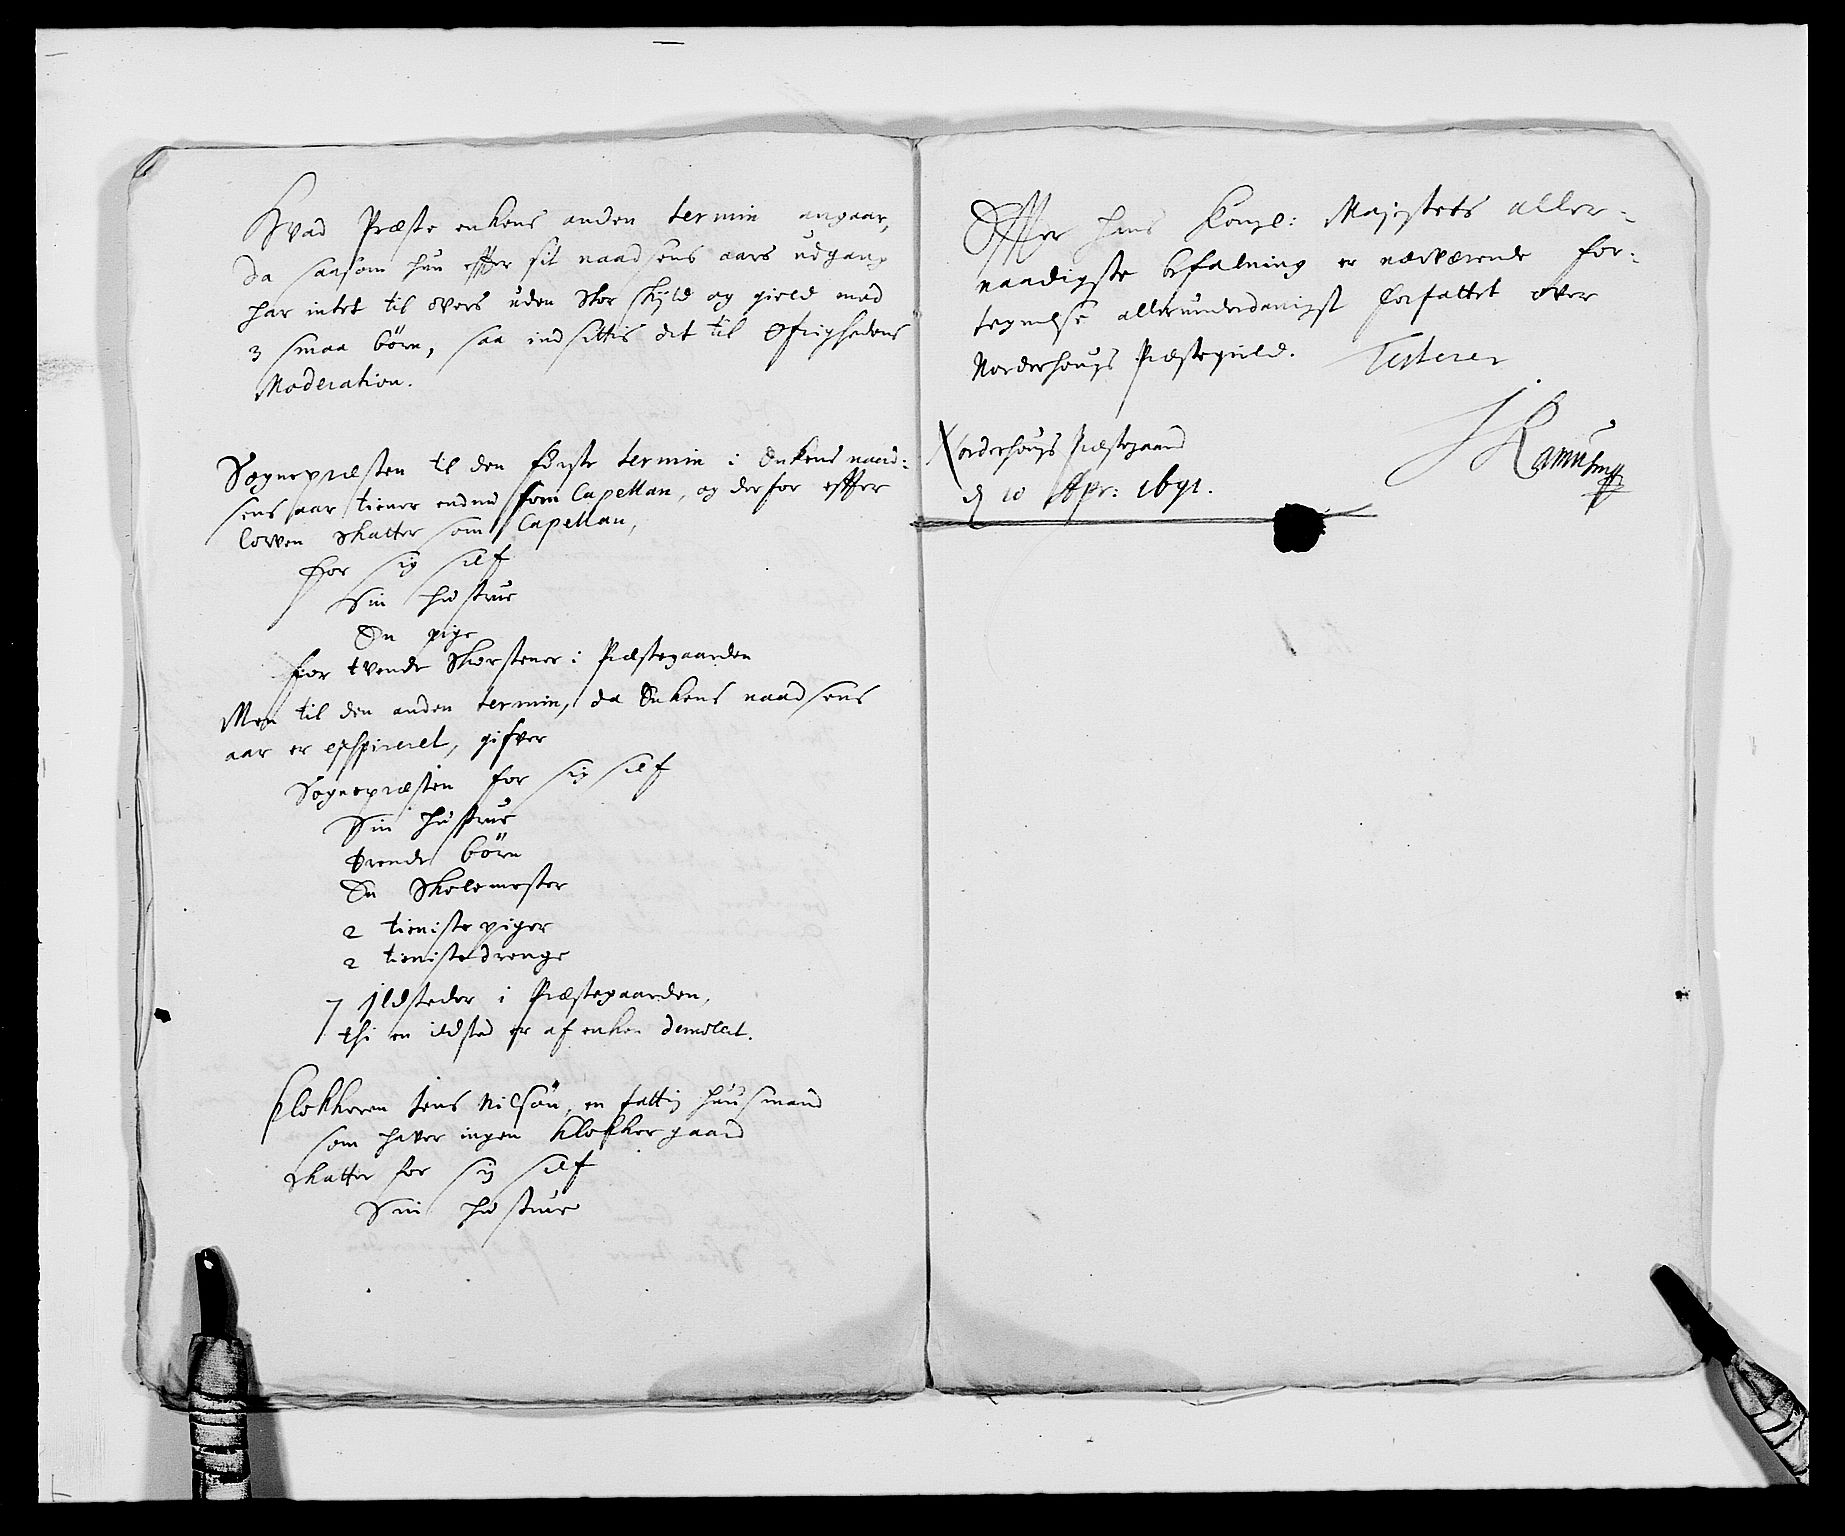 Hvad Præste enkens anden termin angaar,
da saasom hun effter sit naadsens aars udgang
har intet til overs uden stor skyld og gield med
3 smaa börn, saa indsettis det til Øfrighedens
Moderation.
Sognepræsten til den første termin i Enkens naad:
sens aar tiener endnu som Capellan, og derfor effter
loven skatter som Capellan,
for sig self
Sin hustrue
En pige
for tvende Skorstener i Præstegaarden
Men til den anden termin, da Enkens naadsens
aar er exspireret, gifver
Sognepræsten for sig self
Sin hustrue
trende börn
En Skolemester
2 tieniste piger
2 tieniste drenge
7 Ildsteder i Præstegaarden,
thi en ildsted er af enken demolert.
Klokkeren Jens Nilsön, en fattig huusmand
som haver ingen Klokker gaard
skatter for sig self
Sin hustrue
Effter hans Kongl: Majestets aller-
naadigste befalning er nærværende for:
tegnelse allerunderdanigst forfattet over
Norderhougs Præstegield. Testerer
Norderhougs Præstegaard
d 10 Apr: 1691.
J Ramus